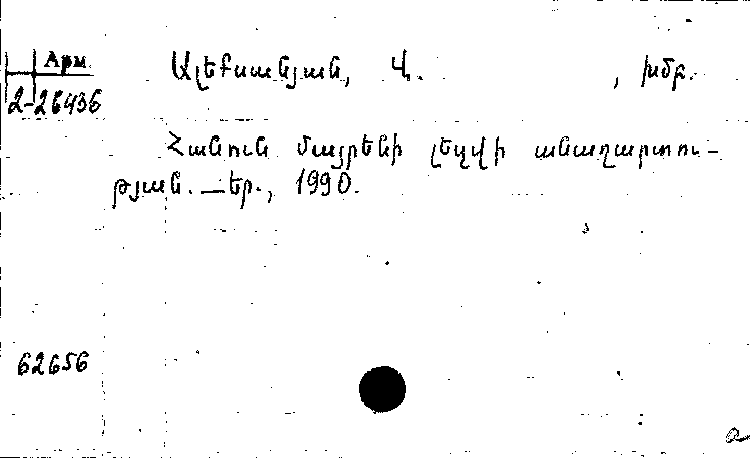 Арм
2-26436
Ալեքսանյան, Վ. , խմբ.
Հանուն մայրենի լեզվի անաղարտու-
թյան. — Եր., 1990.
62656